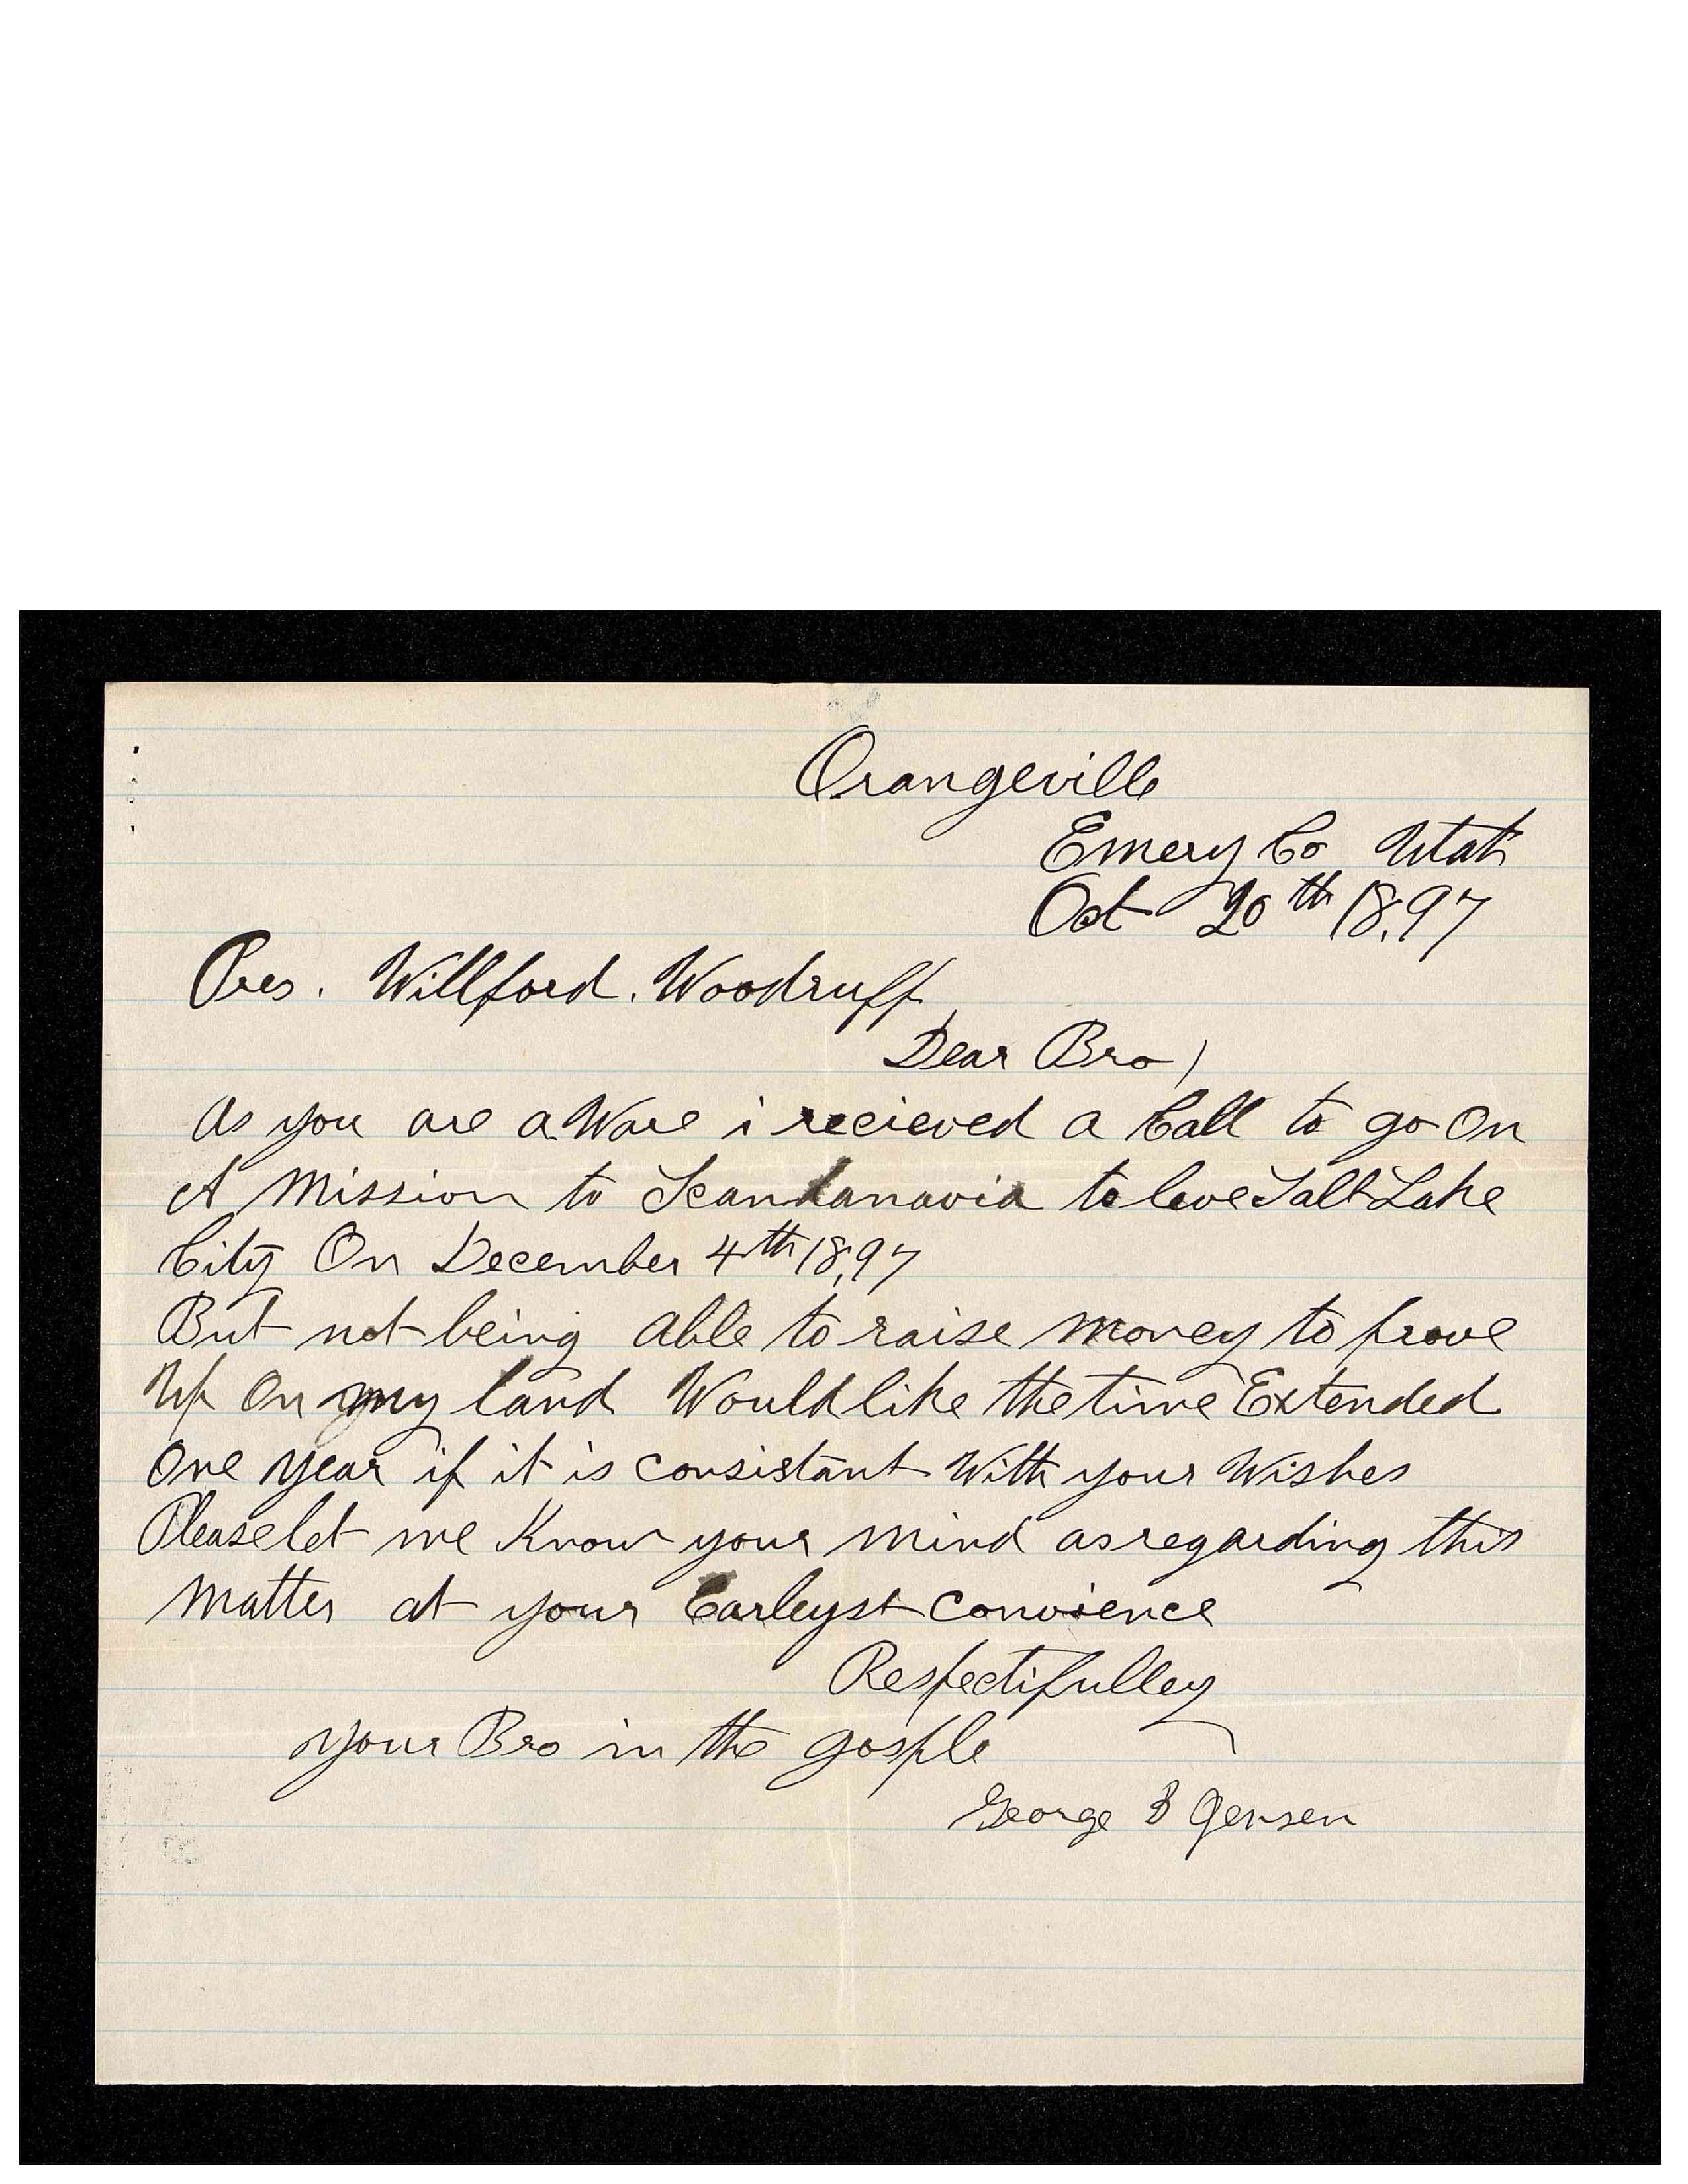 Orangeville
Emery Co Utah
Oct 20th 18,97
Pres. Willford. Woodruff,
Dear Bro,
As you are aWare i recieved a Call to go On
A Mission to Scandanavia to leve Salt Lake
City On December 4th 18,97
But not being Able to raise money to prove
Up On my land Would like the time Extended
One year if it is consistant With your Wishes
Please let me Know your mind as regarding this
Matter at your Earleyst Convience
Respectifulley
your Bro in the gosple
George Jensen